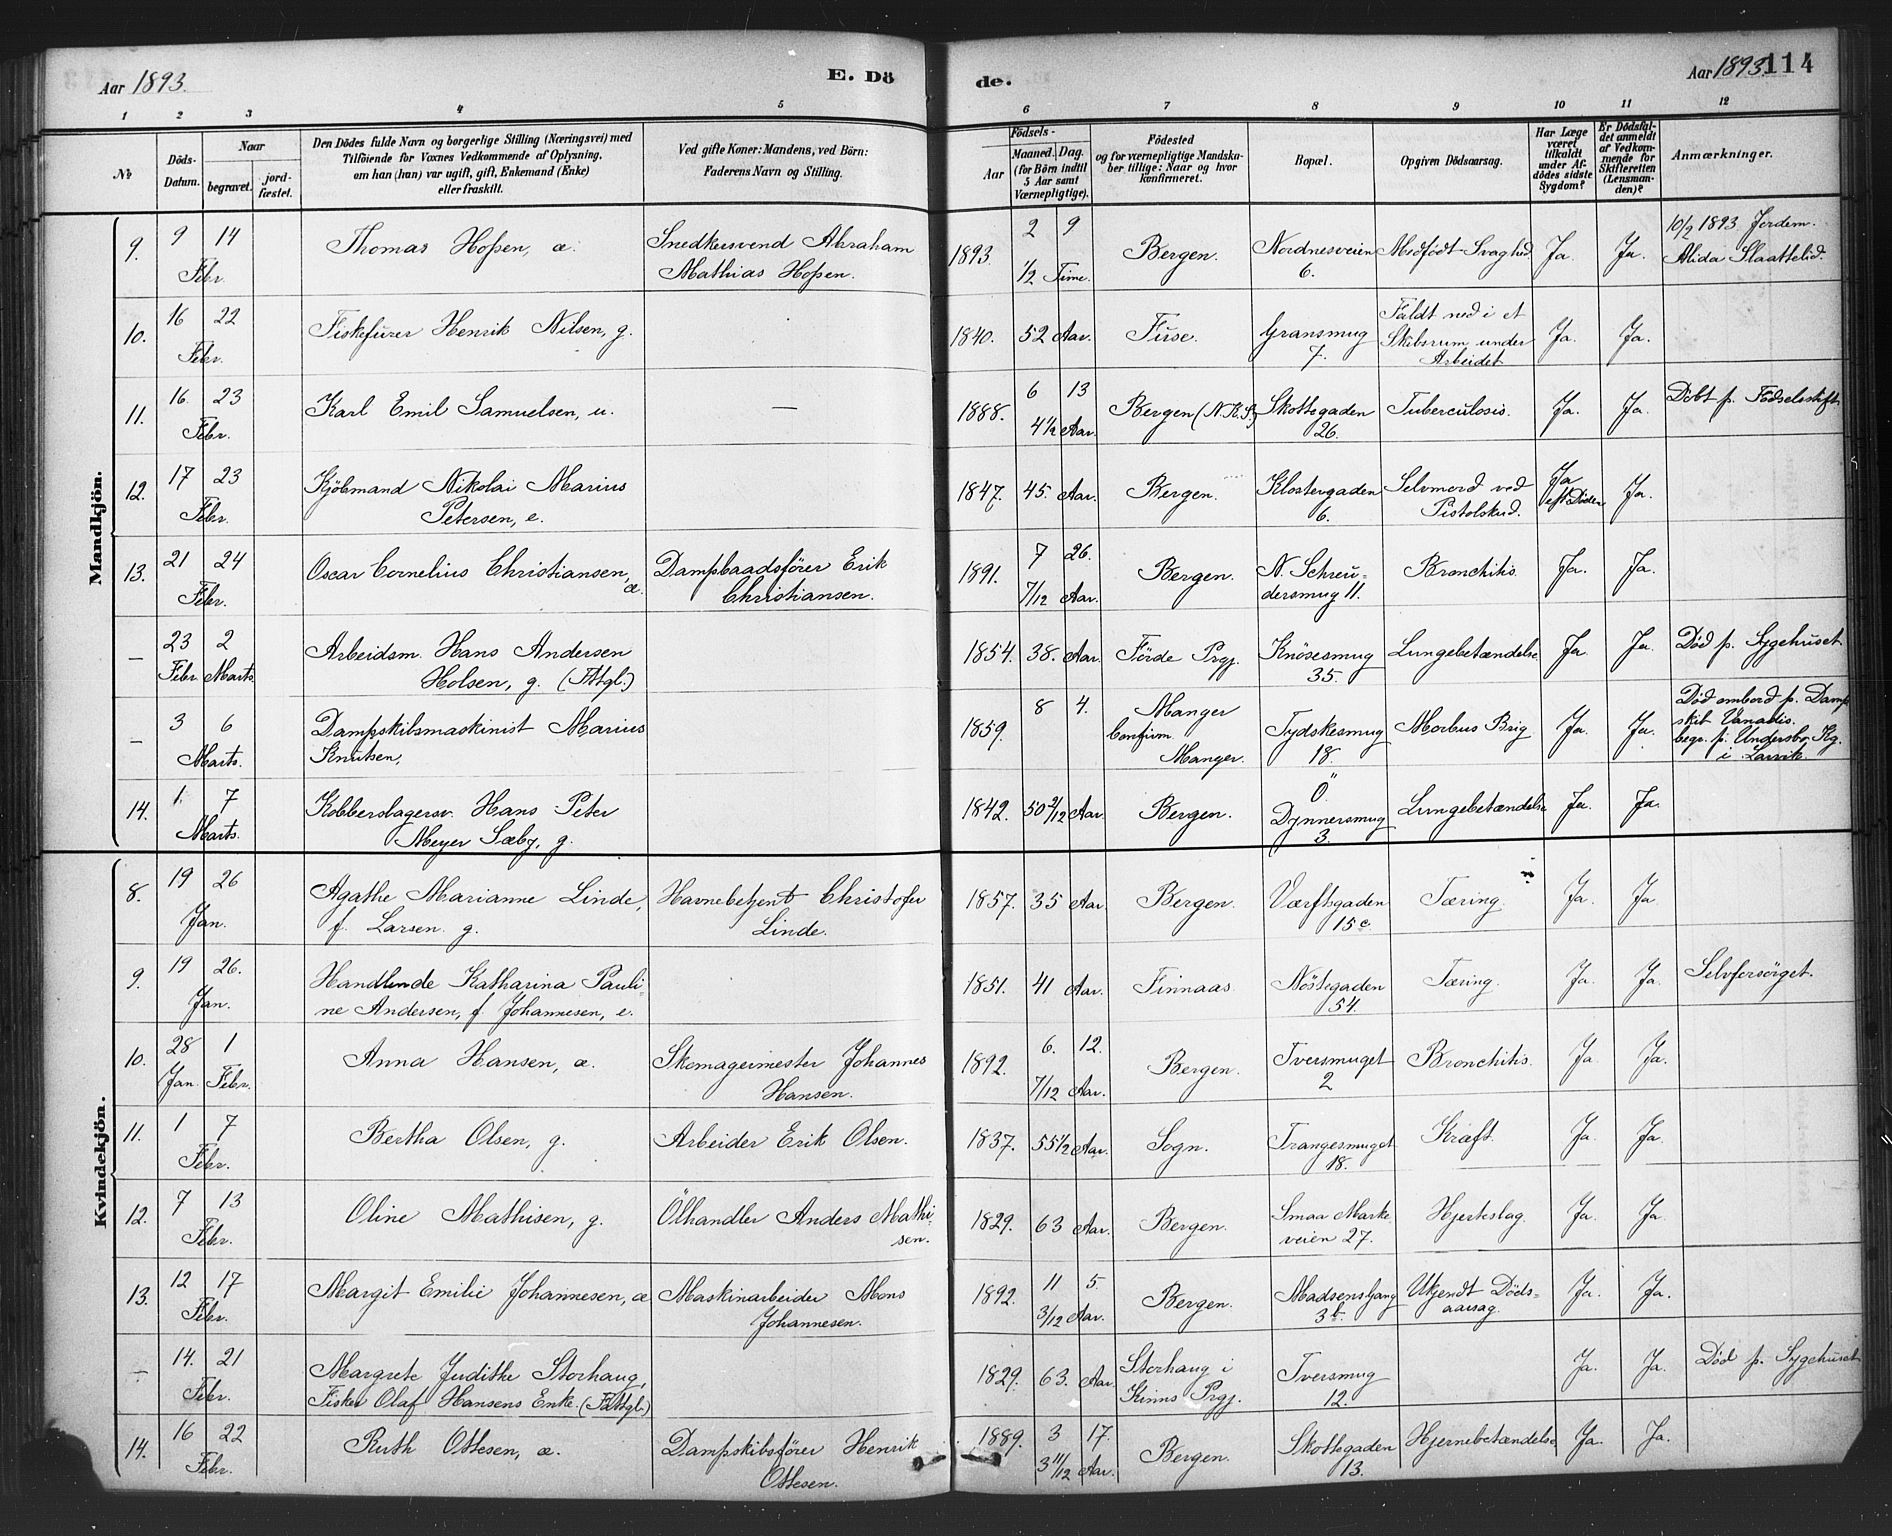 Aar 1893.
E. Dö
de.
Aar 1893.
114
1 2 3 4 5 6 7 8 9 10 11 12
No
Döds-Datum.
Naar
begravet.
jord-fæstet.
Den Dödes fulde Navn og borgerlige Stilling (Næringsvei) med
Tilföiende for Voxnes Vedkommende af Oplysning,
om han (hun) var ugift, gift, Enkemand (Enke)
eller fraskilt.
Ved gifte Koner: Mandens, ved Börn:
Faderens Navn og Stilling.
Födsels-
Aar
Maaned. Dag.
(for Börn indtil
5 Aar samt
Værnepligtige).
Födested
og for værnepligtige Mandska-
ber tillige: Naar og hvor
konfirmeret.
Bopæl.
Opgiven Dödsaarsag.
Har Læge
været
tilkaldt
under Af-
dödes sidste
Sygdom?
Er Dödsfal-
det anmeldt
af Vedkom-
mende for
Skifteretten
(Lensman-
den)?
Anmærkninger.
Mandkjön.
9. 9 14 Febr. Thomas Hopsen, æ. Snedkersvend Abraham
Mathias Hopsen. 1893. 2 9 1/2 Time. Bergen. Nordnesveien
6. Medfödt Svaghed. Ja. Ja. 10/2 1893 Jordem.
Alida Slaattelid.
10. 16 22 Febr. Fiskefurer Henrik Nilsen, g. 1840. 52 Aar. Fuse. Gransmug
7. Faldt ned i et
Skibsrum under
Arbeidet Ja. Ja.
11. 16. 23 Febr. Karl Emil Samuelsen, u. — 1888. 6 13 4 1/2 Aar. Bergen (N. K. S) Skottegaden
26. Tuberculosis. Ja. Ja. Döbt p. Födselsstift.
12. 17 23 Febr. Kjöbmand Nikolai Marius
Petersen, e. 1847. 45. Aar. Bergen. Klostergaden
6. Selvmord ved
Pistolskud. Ja
eft. Döden Ja.
13. 21 24 Febr. Oscar Cornelius Christiansen,
æ. Dampbaadsförer Erik
Christiansen. 1891. 7 26. 7/12 Aar. Bergen. N. Schreu-
dersmug 11. Bronchitis. Ja. Ja.
— 23 Febr. 2 Marts. Arbeidsm. Hans Andersen
Holsen, g. (Fttgl.) 1854. 38. Aar. Förde Prgj. Knösesmug
35. Lungebetændelse Ja. Ja. Död p. Sygehuset.
— 3 6 Marts. Dampskibsmaskinist Marius
Knutsen, 1859. 8 4. Manger
Confirm.
Manger. Tydskesmug
18. Morbus Brig Ja. Ja. Död ombord p. Damp
skib Vanadis.
begr. p. Undersbo Kg.
i Larvik.
14. 1. 7 Marts. Kobberslagersv. Hans Peter
Meyer Sæby, g. 1842. 50 2/12 Aar. Bergen. Ö
Dynnersmug
3. Lungebetændelse Ja. Ja.
Kvindekjön.
8. 19 26 Jan. Agathe Marianne Linde,
f. Larsen. g. Havnebetjent Christofer
Linde. 1857. 35 Aar. Bergen. Værftsgaden
15 c. Tæring. Ja. Ja
9. 19 26. Jan. Handlende Katharina Pauli-
ne Andersen, f. Johannesen, e. 1851. 41 Aar. Finnaas. Nöstegaden
54. Tæring. Ja. Ja. Selvforsörget.
10. 28 Jan. 1 Febr. Anna Hansen, æ. Skomagermester Johannes
Hansen. 1892. 6. 12. 7/12 Aar. Bergen. Tversmuget
2 Bronchitis. Ja Ja.
11. 1 7 Febr. Bertha Olsen, g. Arbeider Erik Olsen. 1837. 55 1/2 Aar. Sogn. Trangesmuget
18. Kræft. Ja. Ja.
12. 7 13 Febr. Oline Mathisen, g. Ölhandler Anders Mathi-
sen. 1829. 63 Aar. Bergen. Smaa Marke
veien 27. Hjerteslag. Ja. Ja.
13. 12 17 Febr. Margit Emilie Johannesen, æ Maskinarbeider Mons
Johannesen. 1892. 11 5. 3/12 Aar. Bergen. Madsensgang
3 b. Ukjendt Döds-
aarsag. Ja. Ja.
— 14. 21 Febr. Margrete Judithe Storhaug,
Fisker Olaf Hansens Enke. (Fattgl.) 1829. 63. Aar. Storhaug i
Kinns Prgj. Tversmug
12. Ja. Ja. Död p. Sygehuset
14. 16 22 Febr. Ruth Ottesen, æ. Dampskibsförer Henrik
Ottesen. 1889. 3 17. 3 11/12 Aar. Bergen. Skottegaden
13. Hjernebetændelse Ja. Ja.